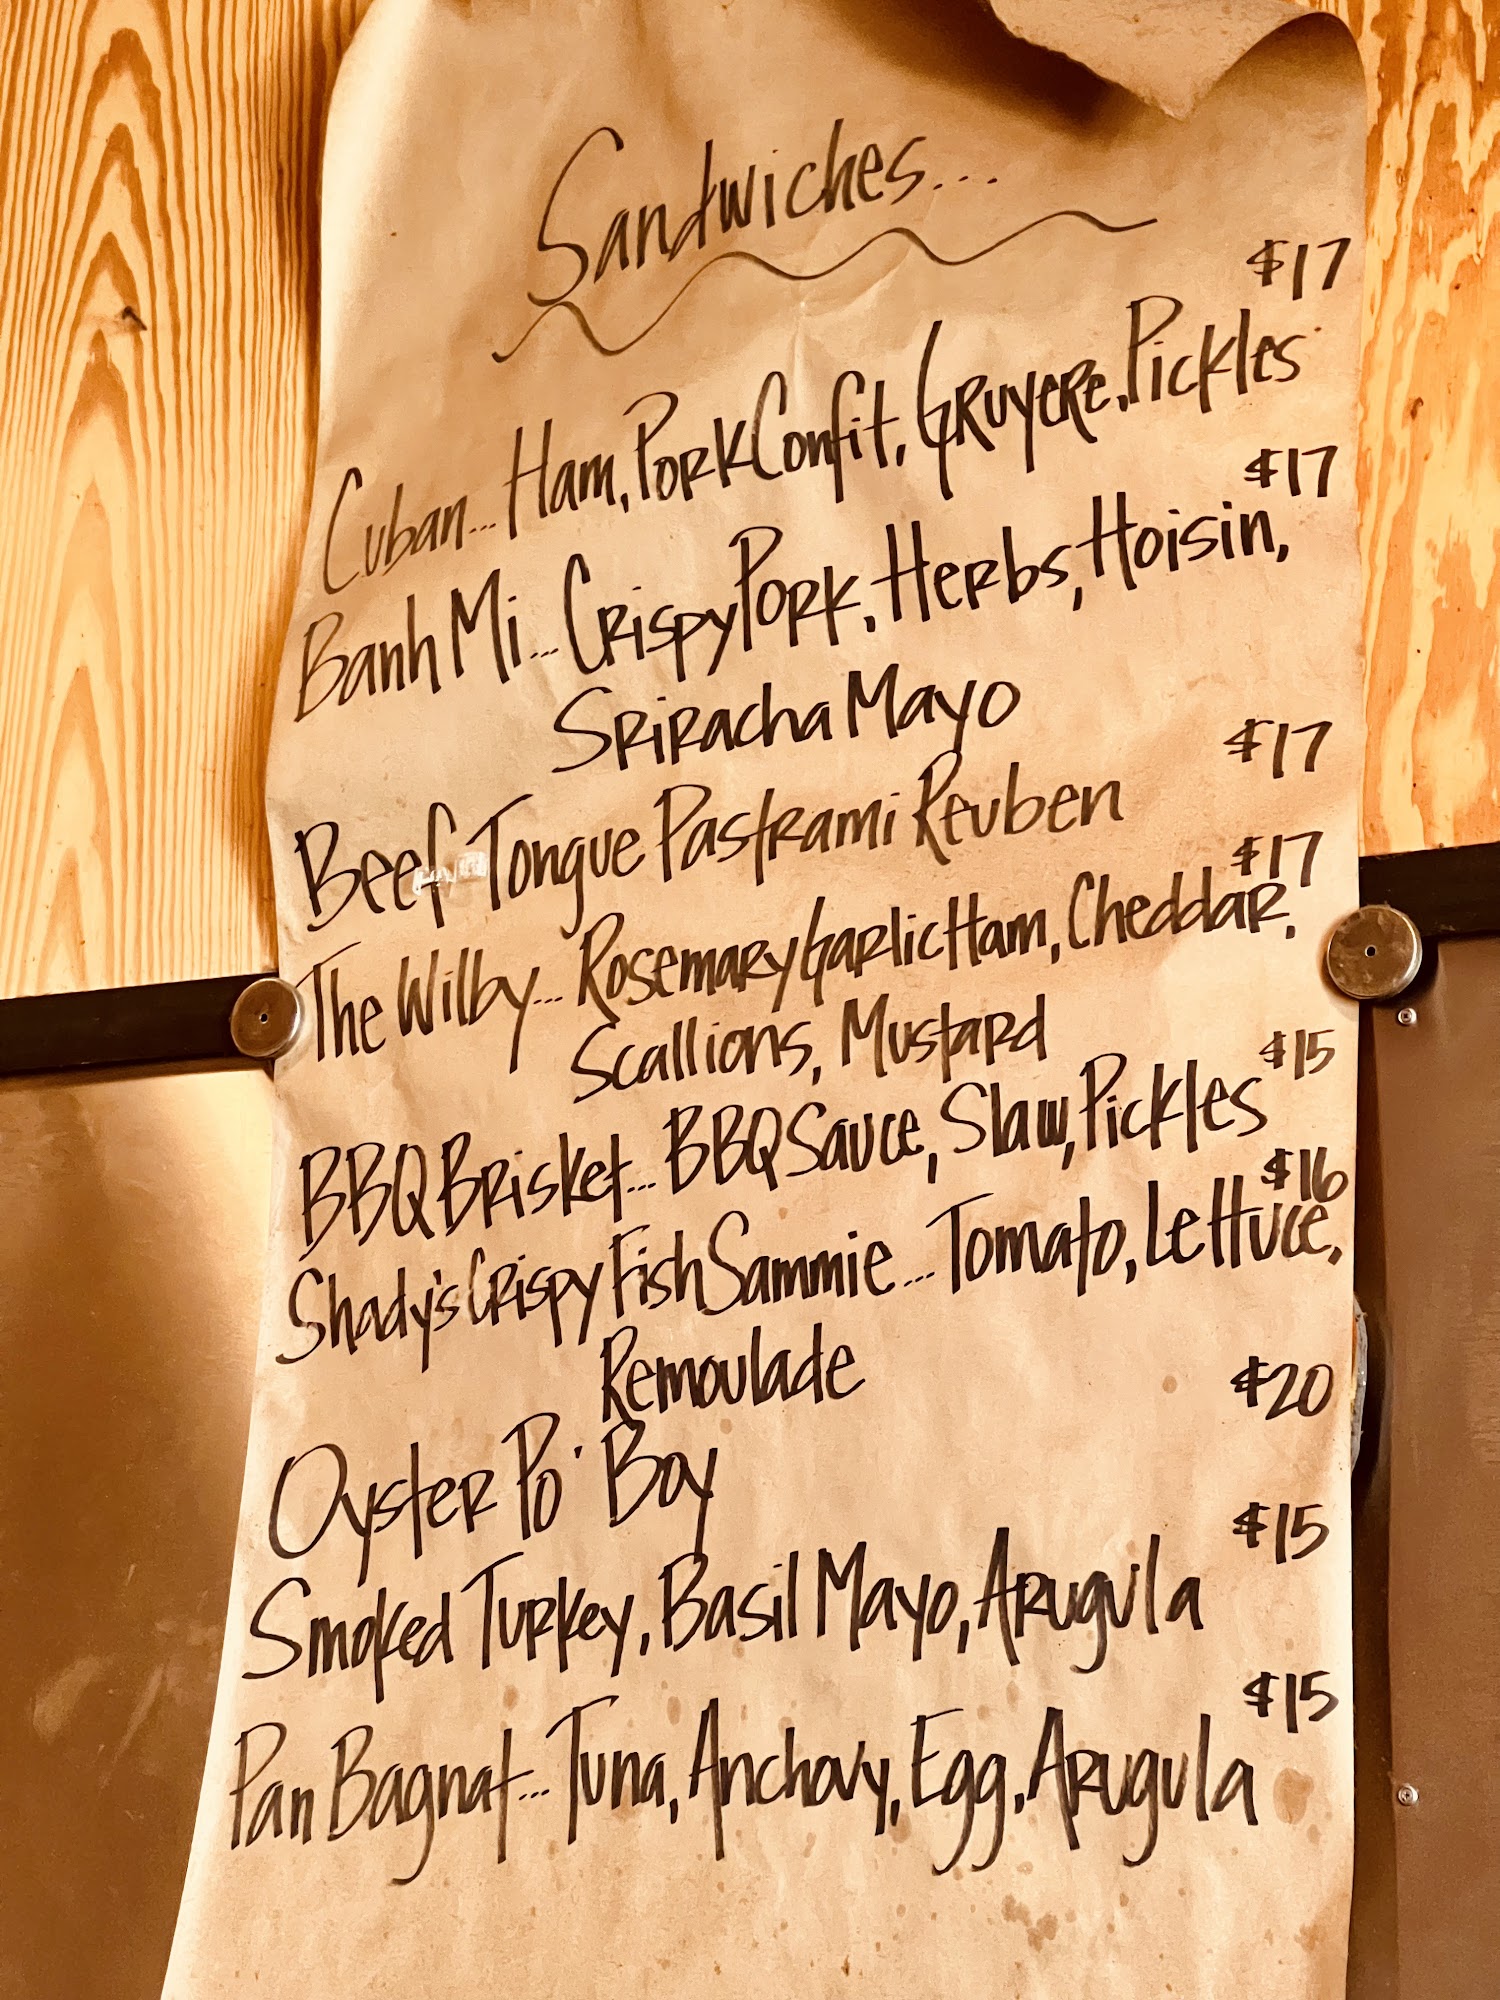 Sandwiches...
$17
Cuban... Ham, Pork Confit, Gruyere, Pickles
$17
Banh Mi... Crispy Pork, Herbs, Hoisin,
Sriracha Mayo
$17
Beef Tongue Pastrami Reuben
$17
The Wilby... Rosemary Garlic Ham, Cheddar,
Scallions, Mustard
$15
BBQ Brisket... BBQ Sauce, Slaw, Pickles
$16
Shady's Crispy Fish Sammie... Tomato, Lettuce,
Remoulade
$20
Oyster Po' Boy
$15
Smoked Turkey, Basil Mayo, Arugula
$15
Pan Bagnat... Tuna, Anchovy, Egg, Arugula